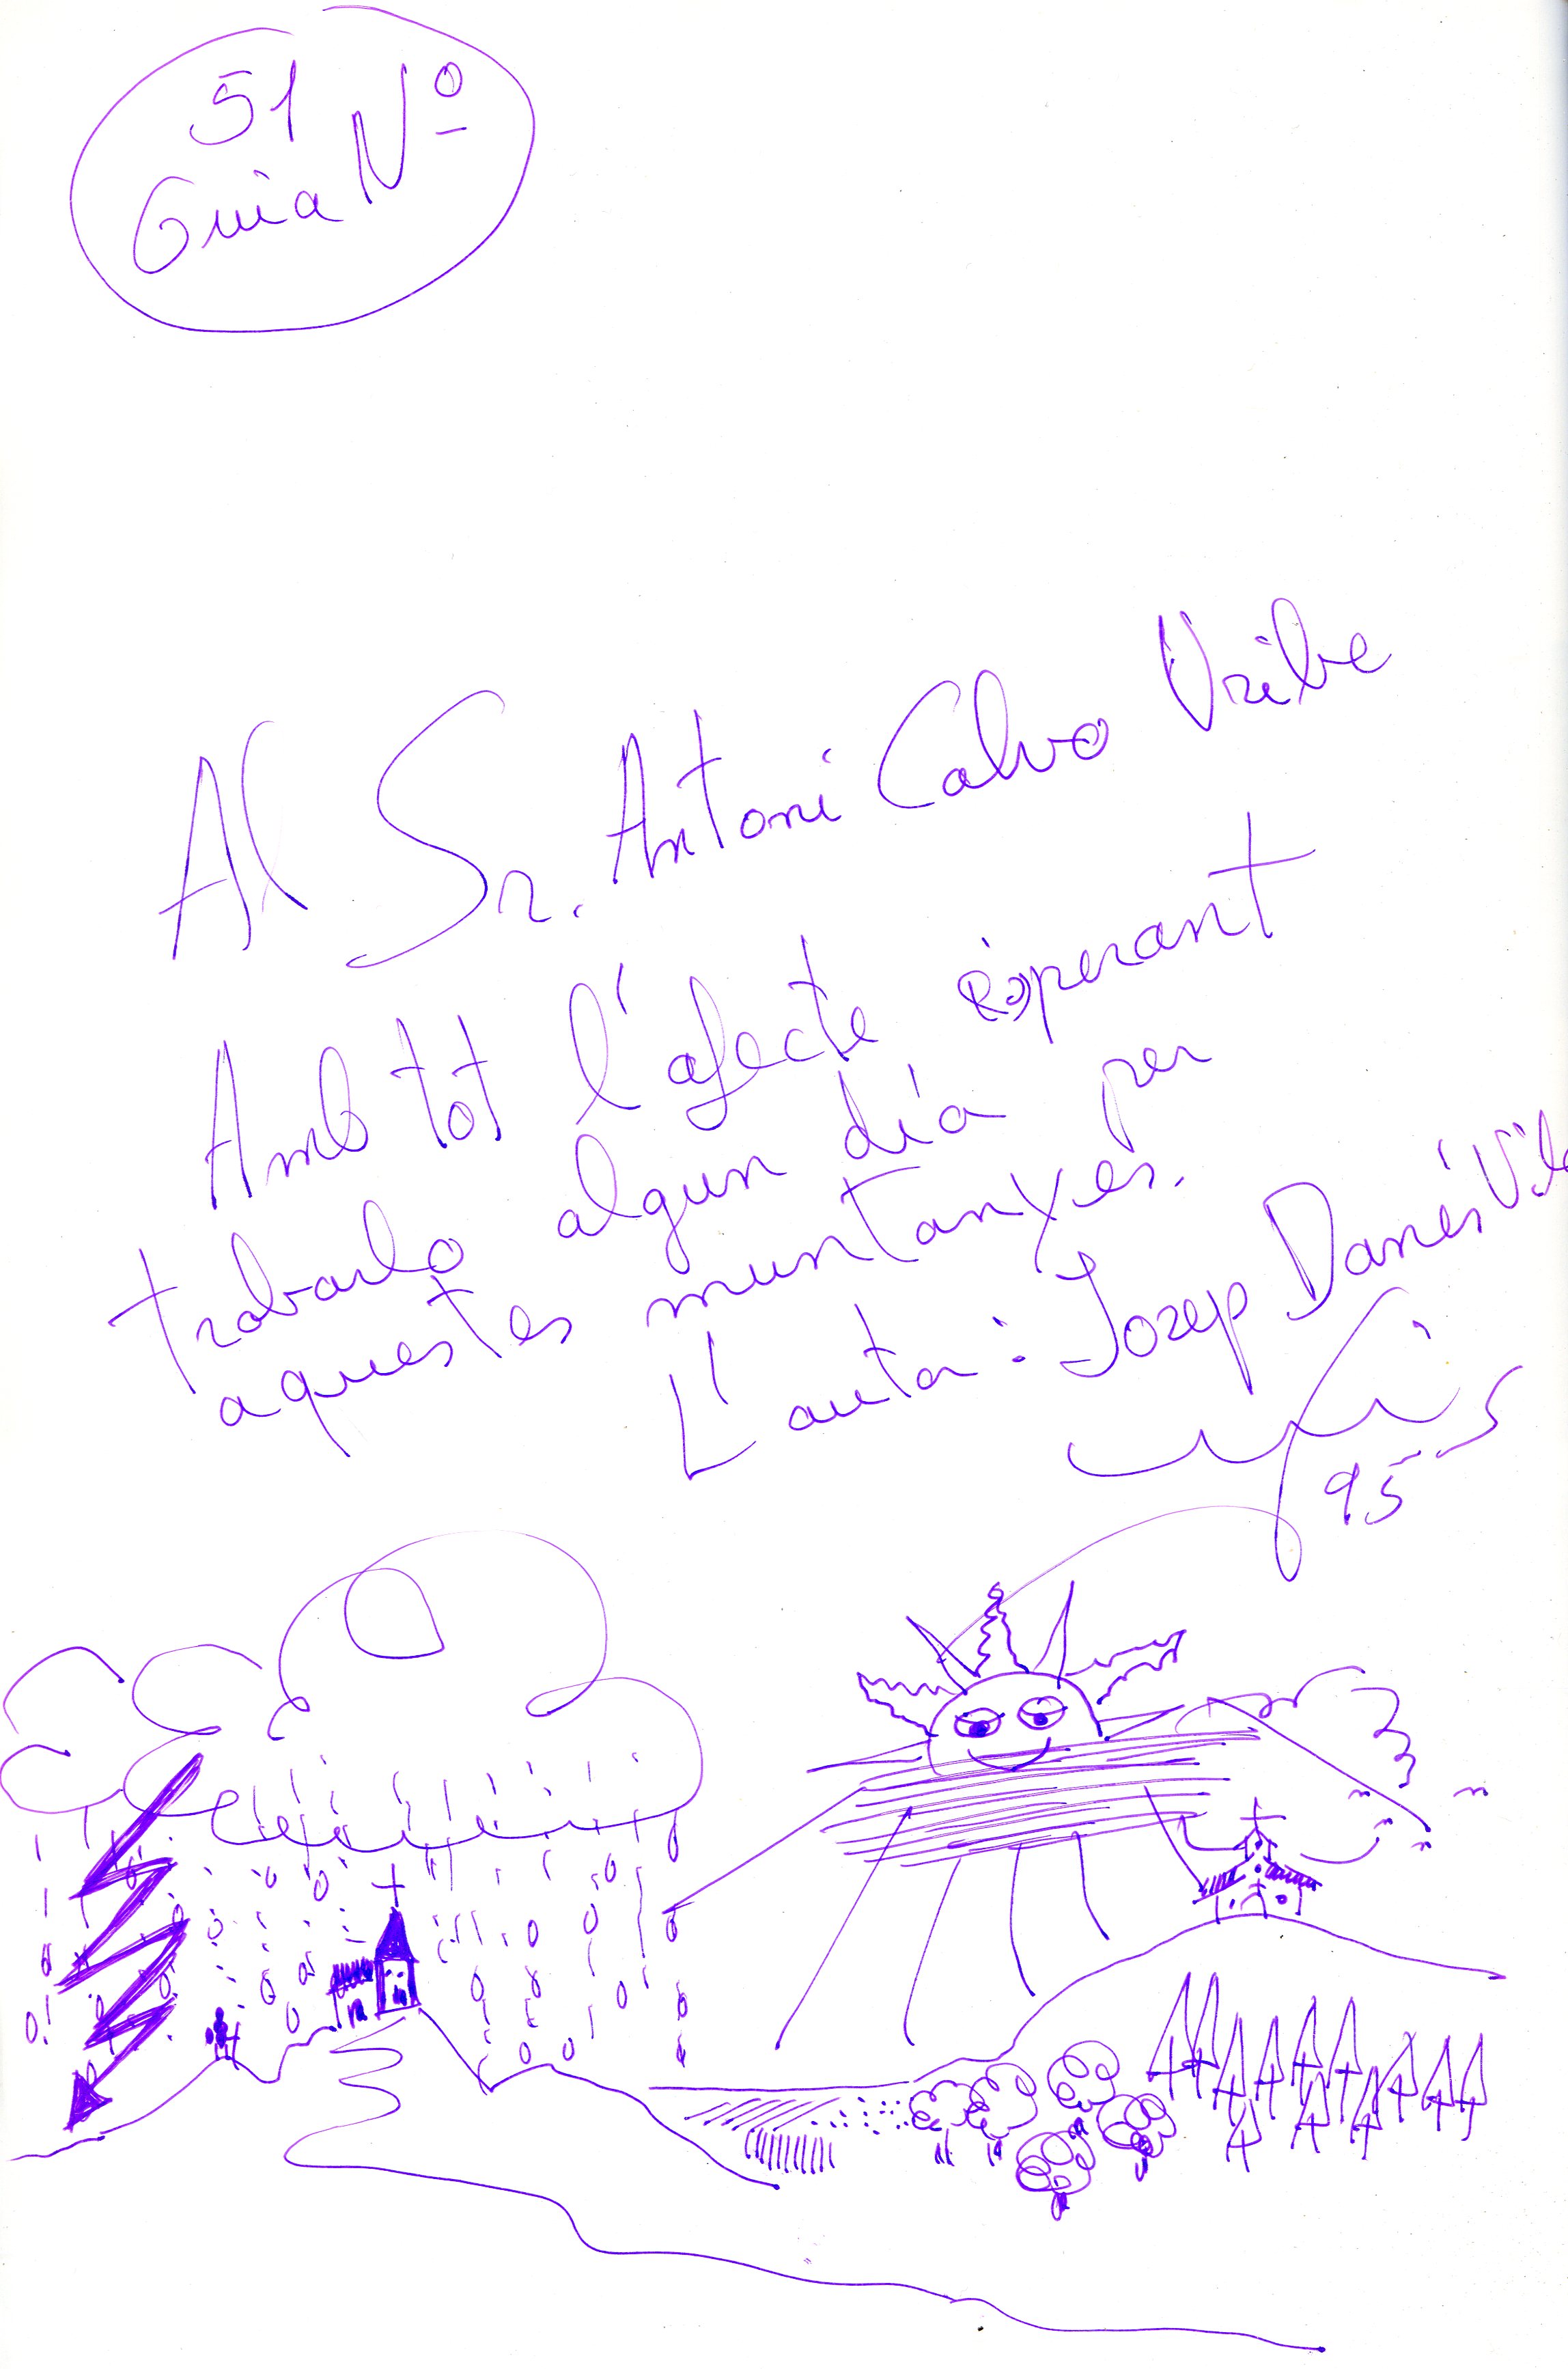 51
Guia Nº
Al Sr. Antoni Calvo Uribe
Amb tot l'afecte esperant
trobarlo algun día per
aquestes muntanyes.
L'autor: Josep Danés Vil
95